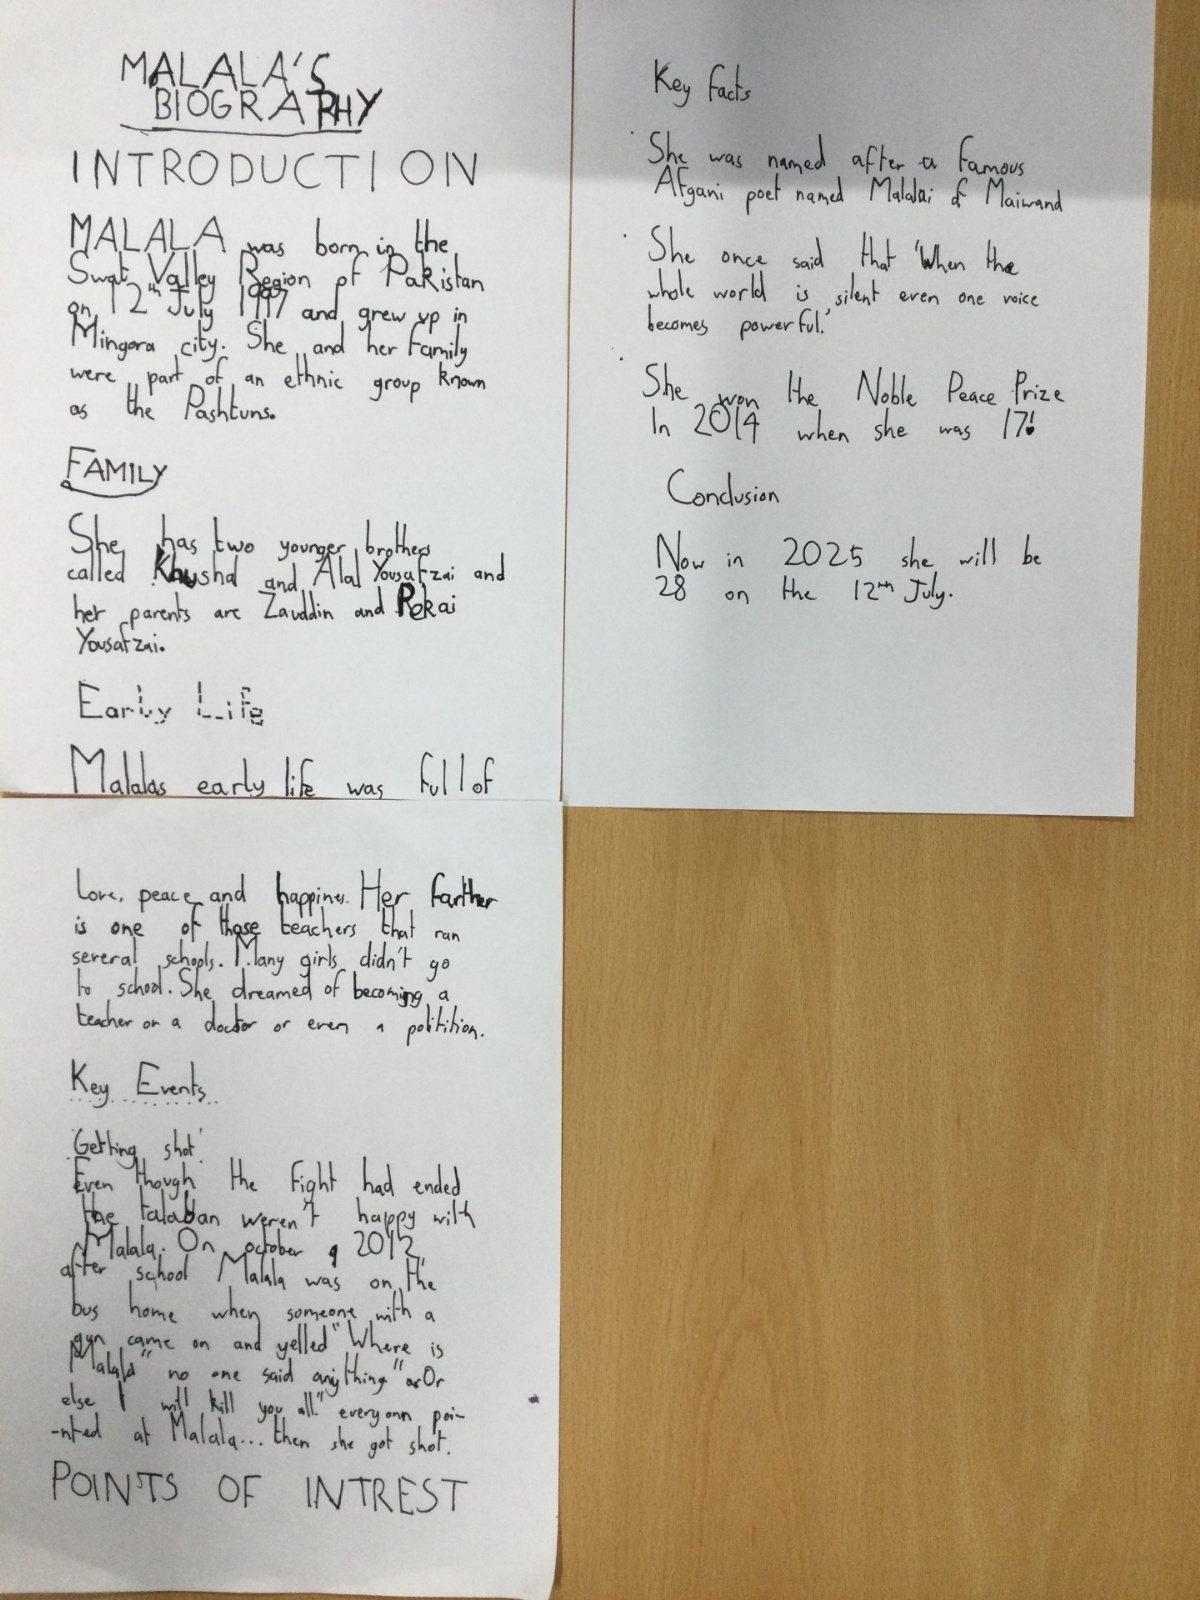 MALALA'S
BIOGRAPHY
INTRODUCTION
MALALA was born in the
Swat Valley Region of Pakistan
on 12th July 1997 and grew up in
Mingora city. She and her family
were part of an ethnic group known
as the Pashtuns.
FAMILY
She has two younger brothers
called Khushal and Atal Yousafzai and
her parents are Zauddin and Pekai
Yousafzai.
Early Life
Malalas early life was full of
Love, peace and happines. Her farther
is one of those teachers that ran
several schools. Many girls didn't go
to school. She dreamed of becoming a
teacher or a doctor or even a politition.
Key Events
'Getting shot'
Even though the fight had ended
the talaban weren't happy with
Malala. On october 9 2012,
after school Malala was on the
bus home when someone with a
gun came on and yelled "Where is
Malala" no one said anything "Or
else I will kill you all." everyonn poi-
-nted at Malala... then she got shot.
POINTS OF INTREST
Key facts
• She was named after a famous
Afgani poet named Malalai of Maiwand
• She once said that 'When the
whole world is silent even one voice
becomes powerful.'
• She won the Noble Peace Prize
In 2014 when she was 17!
Conclusion
Now in 2025 she will be
28 on the 12th July.